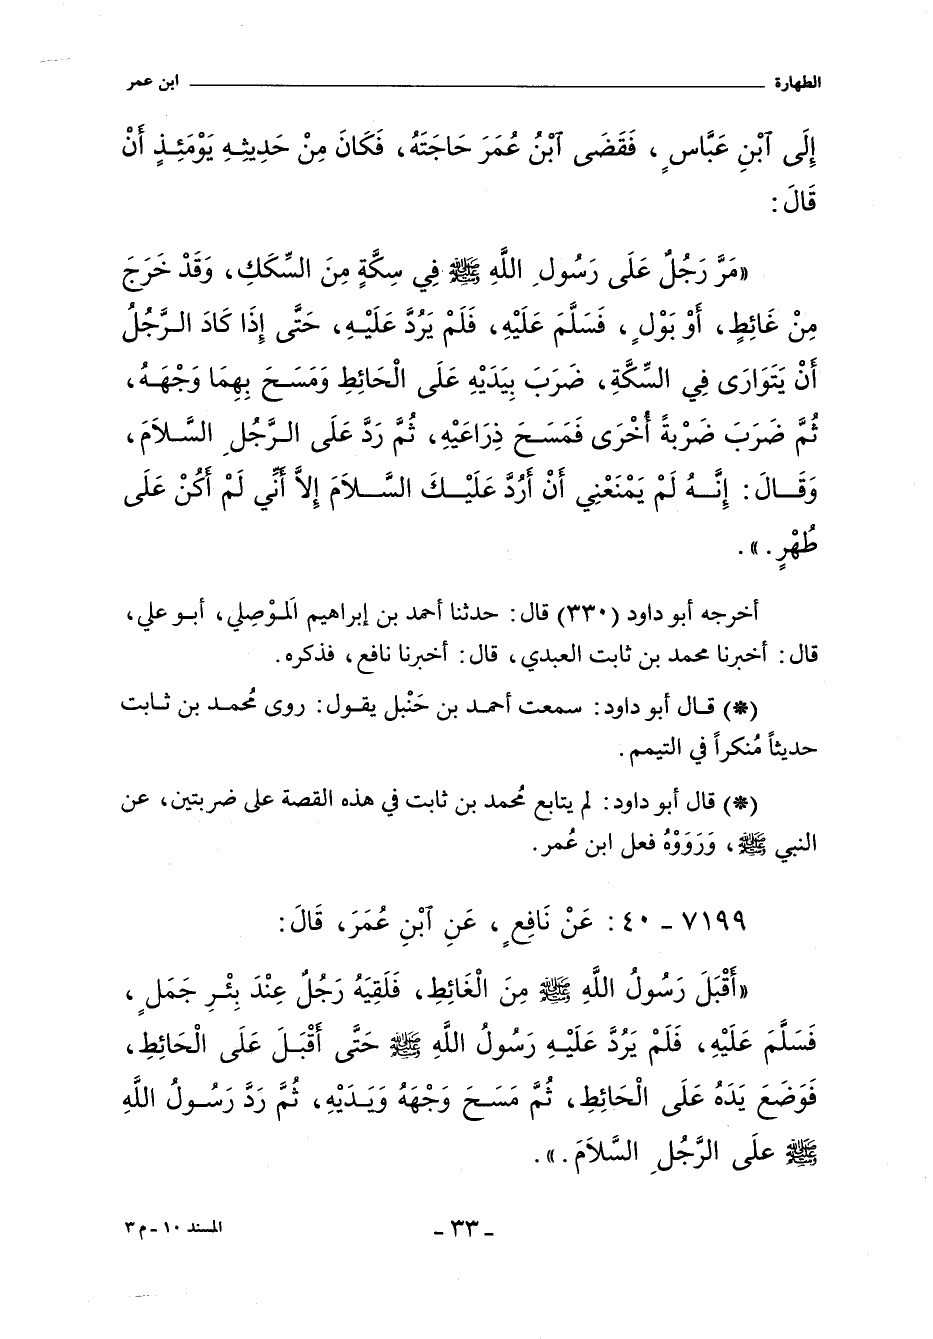 الطهارة ــــــــــ ابن عمر
إِلَى ٱبْنِ عَبَّاسٍ ، فَقَضَى ٱبْنُ عُمَرَ حَاجَتَهُ ، فَكَانَ مِنْ حَدِيثِهِ يَوْمَئِذٍ أَنْ
قَالَ :
«مَرَّ رَجُلٌ عَلَى رَسُولِ اللَّهِ ﷺ فِي سِكَّةٍ مِنَ السِّكَكِ ، وَقَدْ خَرَجَ
مِنْ غَائِطٍ ، أَوْ بَوْلٍ ، فَسَلَّمَ عَلَيْهِ ، فَلَمْ يَرُدَّ عَلَيْهِ ، حَتَّى إِذَا كَادَ الرَّجُلُ
أَنْ يَتَوَارَى فِي السِّكَّةِ ، ضَرَبَ بِيَدَيْهِ عَلَى الْحَائِطِ وَمَسَحَ بِهِمَا وَجْهَهُ ،
ثُمَّ ضَرَبَ ضَرْبَةً أُخْرَى فَمَسَحَ ذِرَاعَيْهِ ، ثُمَّ رَدَّ عَلَى الرَّجُلِ السَّلاَمَ ،
وَقَالَ : إِنَّهُ لَمْ يَمْنَعْنِي أَنْ أَرُدَّ عَلَيْكَ السَّلاَمَ إِلاَّ أَنِّي لَمْ أَكُنْ عَلَى
طُهْرٍ . » .
أخرجه أبو داود (٣٣٠) قال : حدثنا أحمد بن إبراهيم المَوْصِلي ، أبو علي ،
قال : أخبرنا محمد بن ثابت العبدي ، قال : أخبرنا نافع ، فذكره .
(*) قال أبو داود : سمعت أحمد بن حَنْبل يقول : روى مُحمد بن ثابت
حديثاً مُنكراً في التيمم .
(*) قال أبو داود : لم يتابع مُحمد بن ثابت في هذه القصة على ضربتين ، عن
النبي ﷺ ، وَرَوَوْهُ فعل ابن عُمر .
٧١٩٩ - ٤٠ : عَنْ نَافِعٍ ، عَنِ ٱبْنِ عُمَرَ ، قَالَ :
«أَقْبَلَ رَسُولُ اللَّهِ ﷺ مِنَ الْغَائِطِ ، فَلَقِيَهُ رَجُلٌ عِنْدَ بِئْرِ جَمَلٍ ،
فَسَلَّمَ عَلَيْهِ ، فَلَمْ يَرُدَّ عَلَيْهِ رَسُولُ اللَّهِ ﷺ حَتَّى أَقْبَلَ عَلَى الْحَائِطِ ،
فَوَضَعَ يَدَهُ عَلَى الْحَائِطِ ، ثُمَّ مَسَحَ وَجْهَهُ وَيَدَيْهِ ، ثُمَّ رَدَّ رَسُولُ اللَّهِ
ﷺ علَى الرَّجُلِ السَّلاَمَ . » .
- ٣٣ -
المسند ١٠ - م ٣